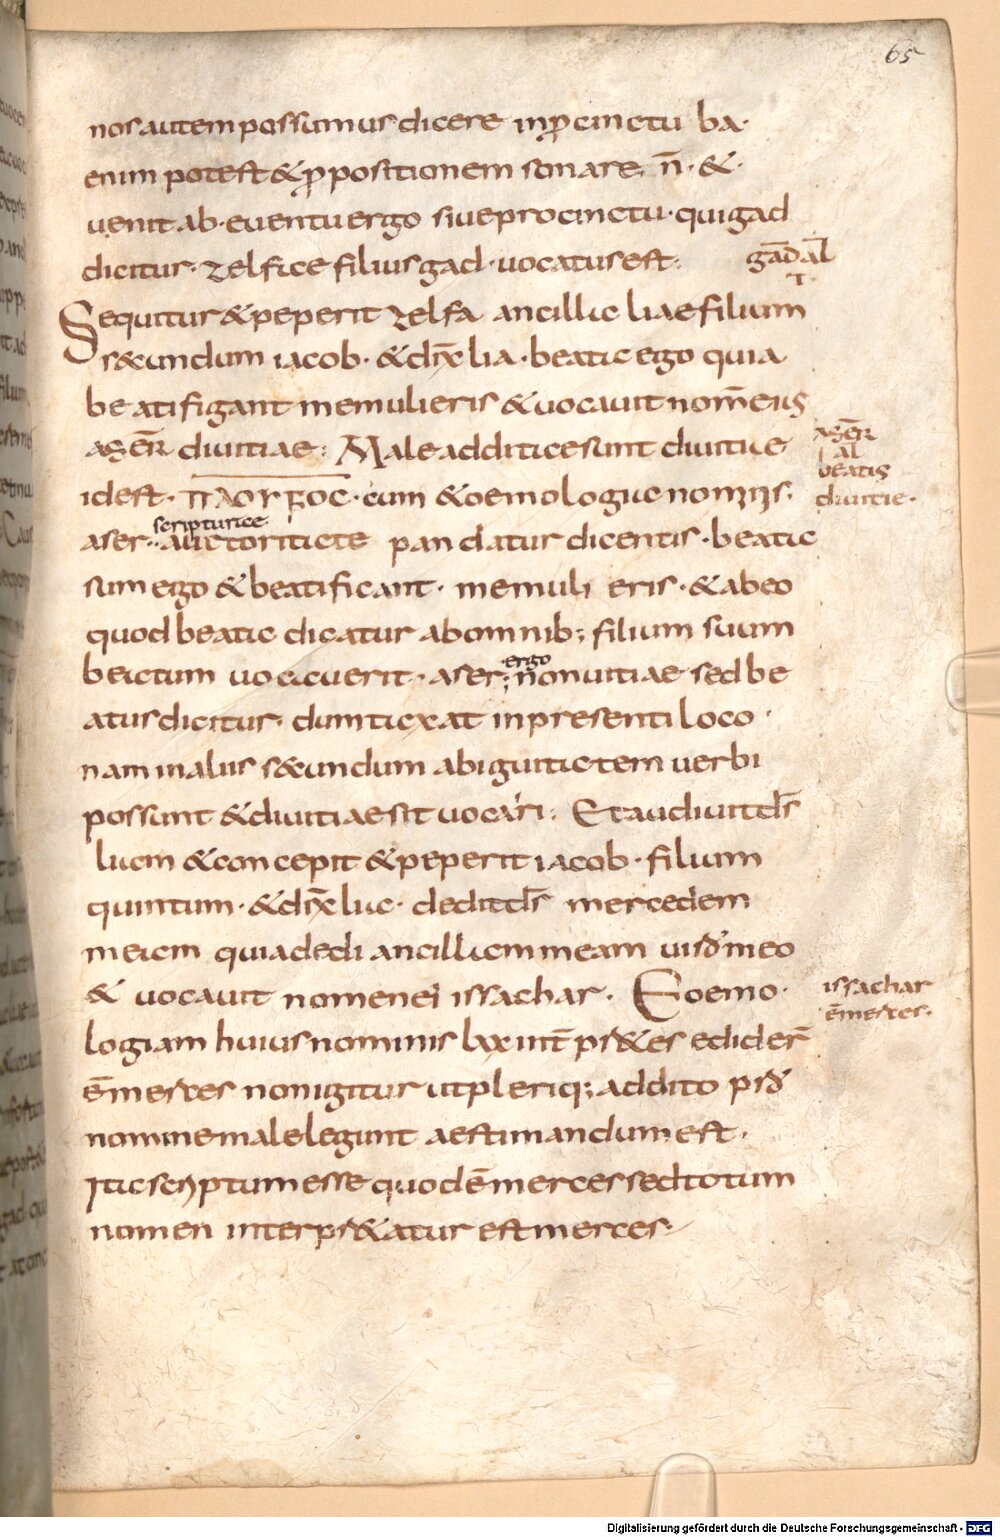 65
nos autem possumus dicere inꝓcinctu ba·
enim potest &ꝓpositionem sonare. n̄·&·
uenit ab·euentu ergo siue procinctu·qui gad
dicitur·zelfae filius gad·uocatus est·
gād al̄
Sequitur & peperit zelfa ancilla liae filium
s&cundum iacob·& dix̄ lia·beata ego quia
beatifigant me mulieris & uocauit nom̄ eius
aser diuitiae: Male additae sunt diuitiae
id est·ΠΛΟΥΤΟC·cum &oemologiae nominis
aser·auctoritate pandatur dicentis·beata
scripturae
sum ego & beatificant·me muli eris·& ab eo
quod beata dicatur ab omnib; filium suum
beatum uocauerit·aser; non diuitiae sed be
ergo
atus dicitur dumtaxat in presenti loco·
nam in aliis s&cundum abiguitatem uerbi
possunt & diuitiae sit uocari: Et audiuit d̄s
liam & concepit & peperit iacob·filium
quintum·& dix̄ lia·dedit d̄s mercedem
meam quia dedi ancillam meam uiro meo
& uocauit nomen ei issachar. &oemo·
logiam huius nominis lxx int̄ pr&es edider̄
ē merces non igitur ut pleriq; addito pro
nomine male legunt aestimandum est·
Ita scriptum esse quod ē merces sed totum
nomen interpr&atur est merces·
aser
al
beatis
diuitie·
issachar
ē merces·
Digitalisierung gefördert durch die Deutsche Forschungsgemeinschaft - DFG